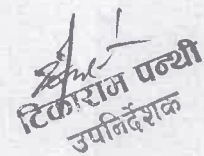 टिकाराज पन्थी
उपनिर्देशक